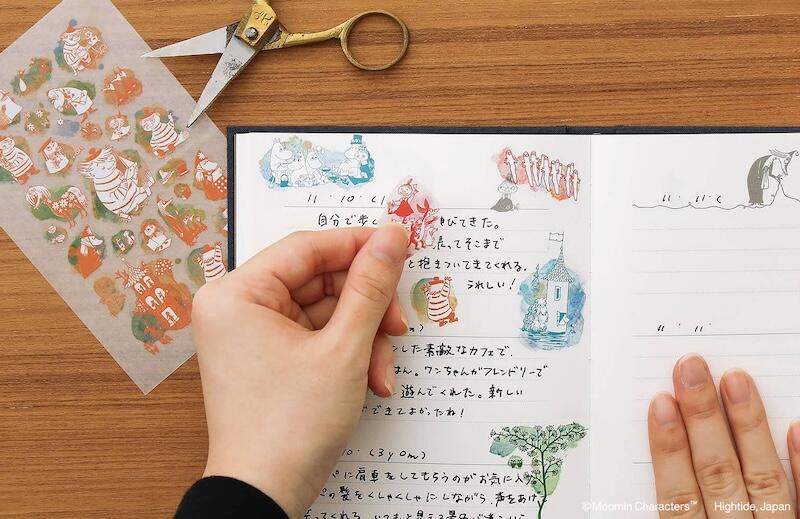 11 · 10 · (1
11 · 11 · (
自分で歩 びてきた。
てそこまで
と抱きついてきてくれる。
うれしい!
11 · 11 ·
m)
した素敵なカフェで、
はん。ワンちゃんがフレンドリーで
遊んでくれた。新しい
できてよかったね!
10 · (3y0m)
に肩車をしてもらうのがお気に入
の髪をくしゃくしゃにしながら、声をあげ
©Moomin Characters™ Hightide, Japan